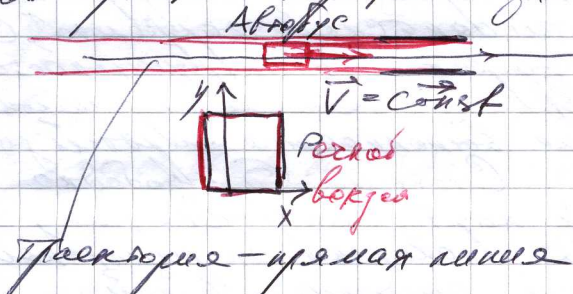 Автобус
y V = const
Речной
вокзал
x
Траектория – прямая линия